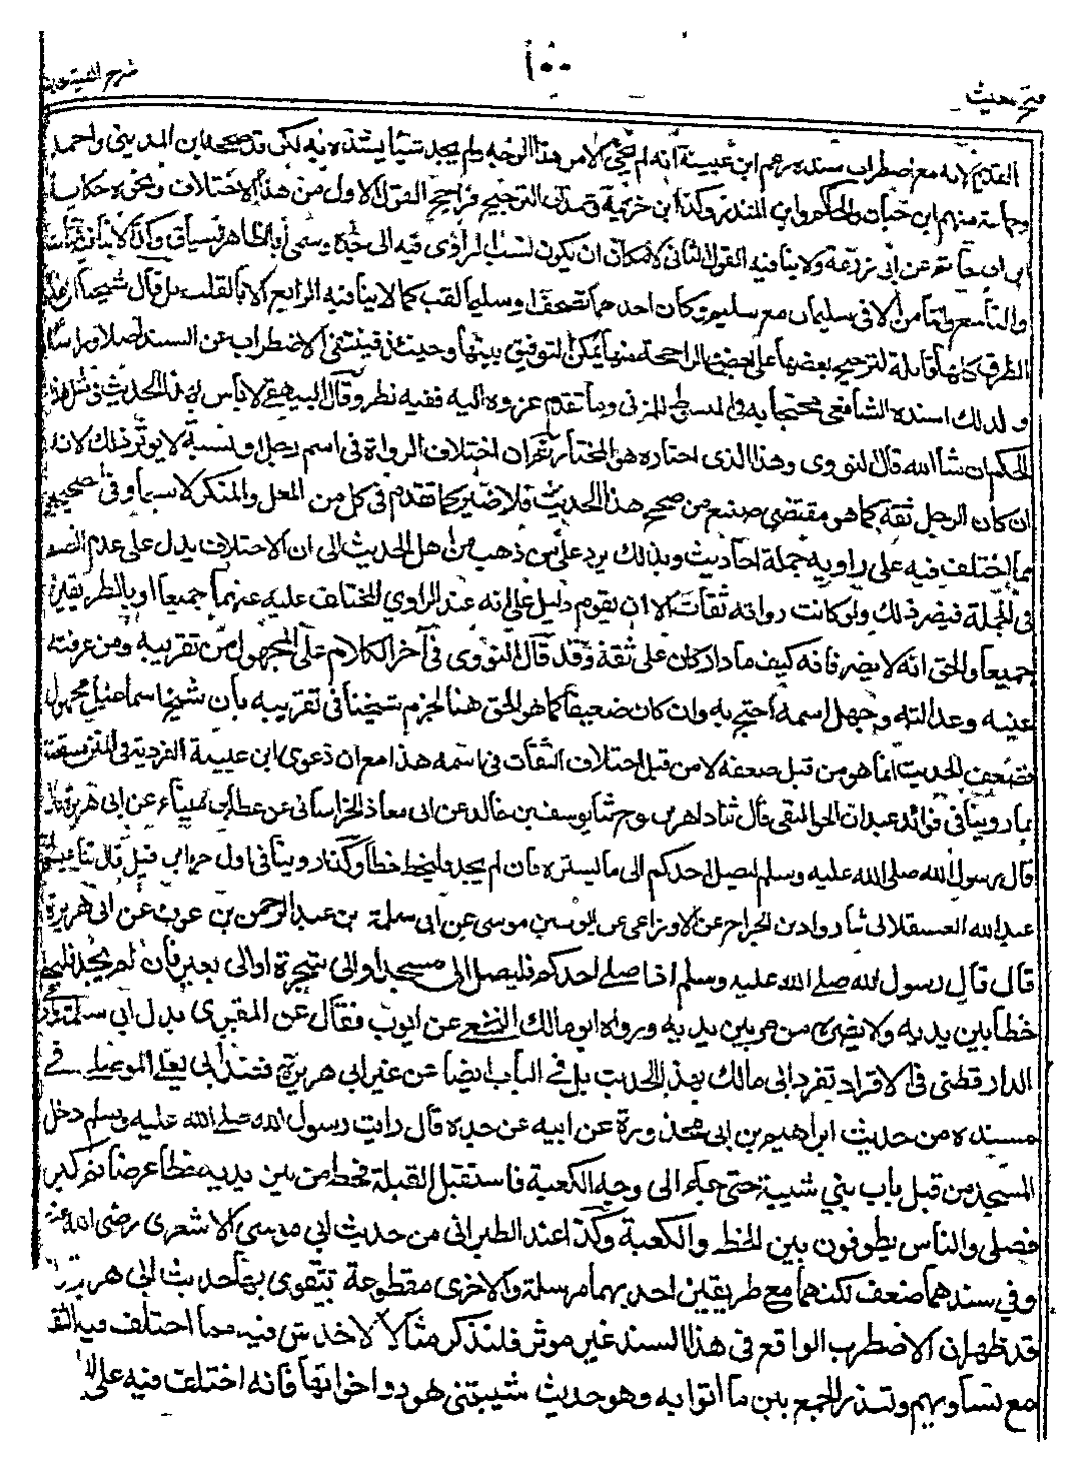 ١٠٠
فتح مغيث
شرح الفية حديث
القديم لانه مع اضطراب سنده زعم ابن عيينة انه لم يجئ الا من هذا الوجه ولم يجد شيأ يشده به لكن قد صححه ابن المديني واحمد
وجماعة منهم ابن حبان والحاكم وابن المنذر وكذا ابن خزيمة وعمدتي الترجيح فراجح القول الاول من هذا الاختلاف ونحوه حكاية
ابن ابي حاتم عن ابي زرعة ولا ينافيه القول الثاني لامكان ان يكون نسب الراوي فيه الى جده وسمي ابا لظاهر السياق وكذا لا ينافي الثالث
والتاسع والثامن الا في سليمان مع سليم وكأن احدهما تصحف او سليما لقب كما لا ينافيه الرابع الا بالقلب بل قال شيخنا
الطرق كلها قابلة لترجيح بعضها على بعض والراجحة منها يمكن التوفيق بينها وحينئذ فينتفي الاضطراب عن السند اصلا ورأسا
ولذلك اسنده الشافعي محتجا به في المبسوط للمزني وما تقدم عزوه اليه ففيه نظر وقال البيهقي لا بأس بهذا الحديث في مثل هذا
الحكم ان شاء الله قال النووي وهذا الذي اختاره هو المختار ثم ان اختلاف الرواة في اسم رجل او نسبه لا يؤثر ذلك لانه
ان كان الرجل ثقة كما هو مقتضى صنيع من صحح هذا الحديث فلا ضير كما تقدم في كل من المعل والمنكر لا سيما وفي الصحيحين
مما اختلف فيه على راويه جملة احاديث وبذلك يرد على من ذهب من اهل الحديث الى ان الاختلاف يدل على عدم الضبط
في الجملة فيضر ذلك ولو كانت رواته ثقات الا ان يقوم دليل على انه عند الراوي المختلف عليه عنهما جميعا او بالطريقين
جميعا والحق انه لا يضر فانه كيف ما دار كان على ثقة وقد قال النووي في آخر الكلام على المجهول من تقريبه ومن عرفت
عينه وعدالته وجهل اسمه احتج به وان كان ضعيفا كما هو الحق هنا لجزم شيخنا في تقريبه بأن شيخ اسماعيل مجهول
فضعف الحديث انما هو من قبل ضعفه لا من قبل اختلاف الثقات في اسمه هذا مع ان دعوى ابن عيينة الفردية في المتن منتقضة
بما رويناه في فوائد عبدان الجواليقي قال ثنا داهر بن نوح ثنا يوسف بن خالد عن ابي معاذ الخراساني عن عطاء بن ميناء عن ابي هريرة
قال رسول الله صلى الله عليه وسلم ليصل احدكم الى ما يستره فان لم يجد فليخط خطا وكذا رويناه في اول جزء ابن فيل قال ثنا عيسى
عبد الله العسقلاني ثنا رواد بن الجراح عن الاوزاعي عن ايوب بن موسى عن ابي سلمة بن عبد الرحمن بن عوف عن ابي هريرة
قال قال رسول الله صلى الله عليه وسلم اذا صلى احدكم فليصل الى مسجد او الى شجرة او الى بعير فان لم يجد فليخط
خطا بين يديه ولا يضره من مر بين يديه ورواه ابو مالك النخعي عن ايوب فقال عن المقبري بدل ابي سلمة
الدارقطني في الافراد تفرد ابي مالك بهذا الحديث بل في الباب ايضا عن غير ابي هريرة فعند ابي يعلى الموصلي في
مسنده من حديث ابراهيم بن ابي محذورة عن ابيه عن جده قال رايت رسول الله صلى الله عليه وسلم دخل
المسجد من قبل باب بني شيبة حتى جاء الى وجه الكعبة فاستقبل القبلة فخط من بين يديه خطا عرضا ثم كبر
فصلى والناس يطوفون بين الخط والكعبة وكذا عند الطبراني من حديث ابي موسى الاشعري رضي الله عنه
وفي سندهما ضعف لكنهما مع طريقين احديهما مرسلة والاخرى مقطوعة يتقوى بها حديث ابي هريرة
قد ظهر ان الاضطراب الواقع في هذا السند غير موثر فلنذكر مثالا لاخدش فيه مما اختلف فيه الثقا
مع تساويهم وتعذر الجمع بين ما أتوا به وهو حديث شيبتني هود واخواتها فانه اختلف فيه على